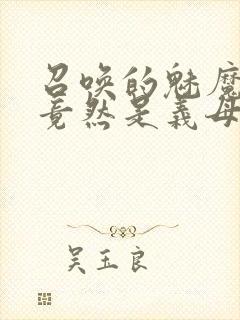 召唤的魅魔
竟然是义母
吴玉良